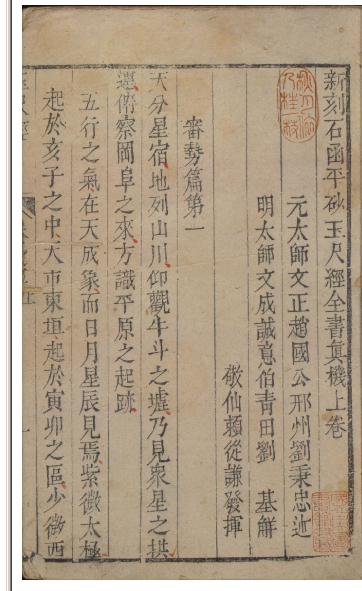 新刻石函平砂玉尺經全書眞機上卷
元太師文正趙國公邢州劉秉忠述
明太師文成誠意伯青田劉　基解
敬仙賴從謙發揮
審勢篇第一
天分星宿地列山川仰觀牛斗之墟乃見衆星之拱
運俯察岡阜之來方識平原之起跡
五行之氣在天成象而日月星辰見焉紫微太極
起於亥子之中天市東垣起於寅卯之區少微西